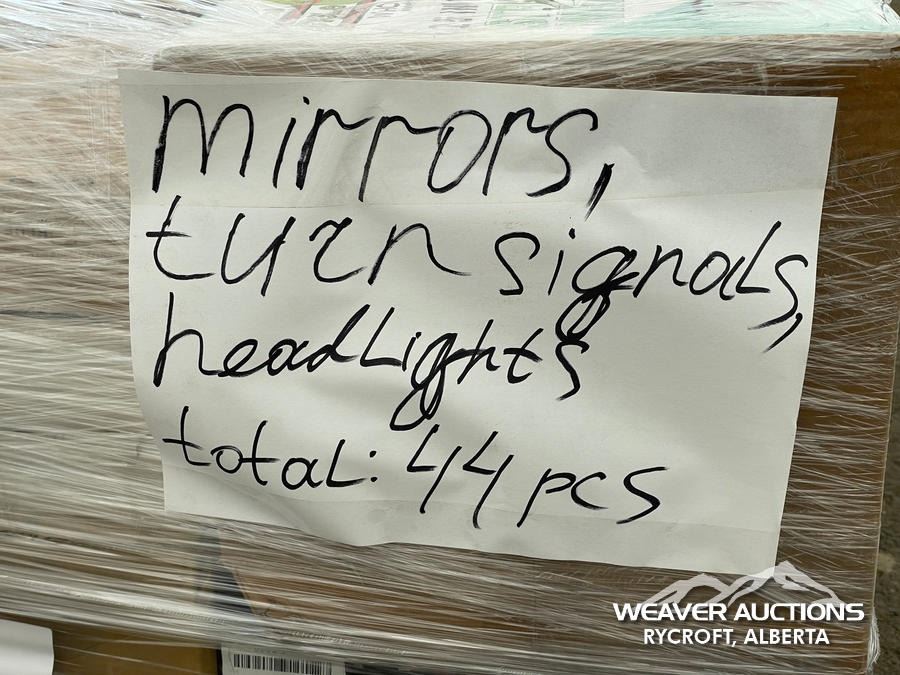 mirrors,
turn signals,
headlights
total: 44 pcs
WEAVER AUCTIONS
RYCROFT, ALBERTA